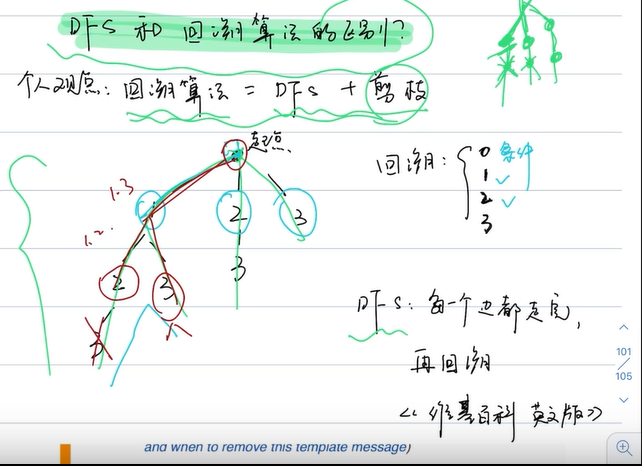 DFS 和 回溯算法的区别?
个人观点: 回溯算法 = DFS + 剪枝
起点
回溯: { 0 条件
1 ✓
2 ✓
3
1.3
2 3
1.2.
3
2 3
3
DFS: 每一个边都走完,
再回溯
<<维基百科 英文版>>
101
105
and when to remove this template message)